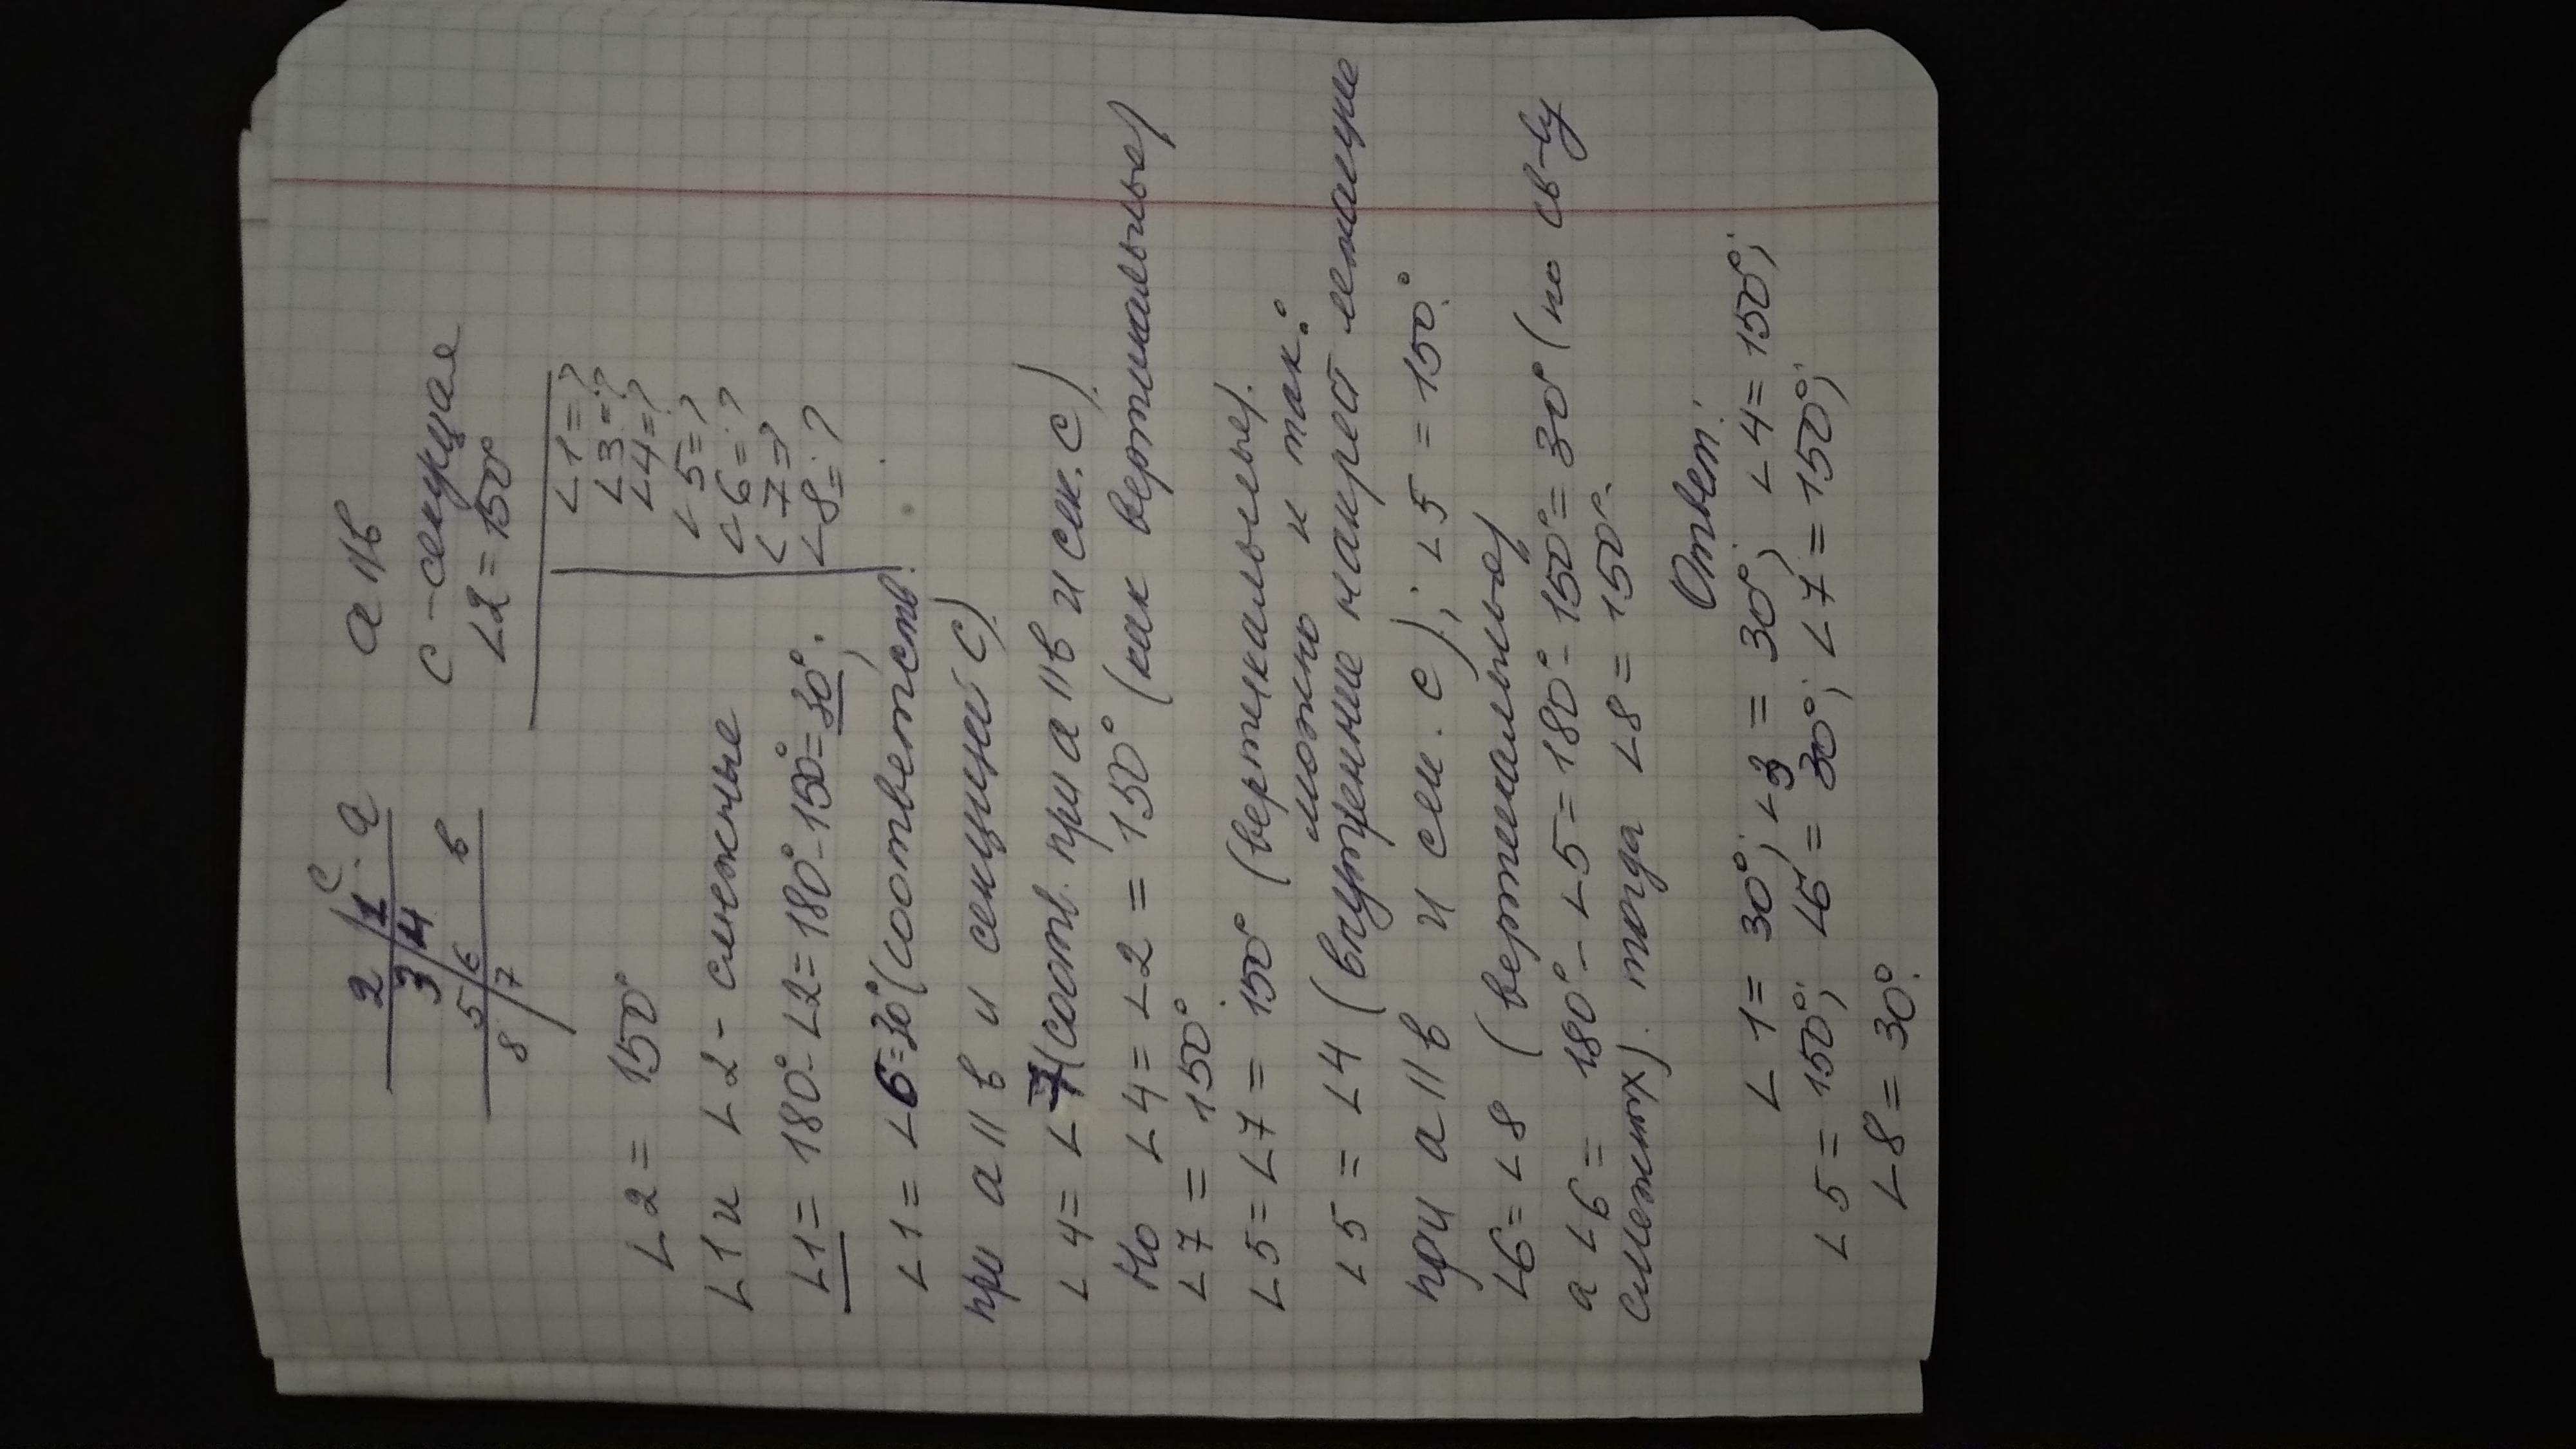 c
2 1 a
3 4
5 6 в
8 7
a || в
c - секущая
∠2 = 150°
∠1 = ?
∠3 = ?
∠4 = ?
∠5 = ?
∠6 = ?
∠7 = ?
∠8 = ?
∠2 = 150°
∠1 и ∠2 - смежные
∠1 = 180° - ∠2 = 180° - 150° = 30°;
∠1 = ∠6 = 30° (соответств.
при a || в и секущей c)
∠4 = ∠7 (соотв. при a || в и сек. c).
Но ∠4 = ∠2 = 150° (как вертикальные)
∠7 = 150°
∠5 = ∠7 = 150° (вертикальные).
можно и так:
∠5 = ∠4 (внутренние накрест лежащие
при a || в и сек. c); ∠5 = 150°.
∠6 = ∠8 (вертикальные)
а ∠6 = 180° - ∠5 = 180° - 150° = 30° (по св-ву
смежных). тогда ∠8 = 150°.
Ответ:
∠1 = 30°; ∠3 = 30°; ∠4 = 150°;
∠5 = 150°; ∠6 = 30°; ∠7 = 150°;
∠8 = 30°.